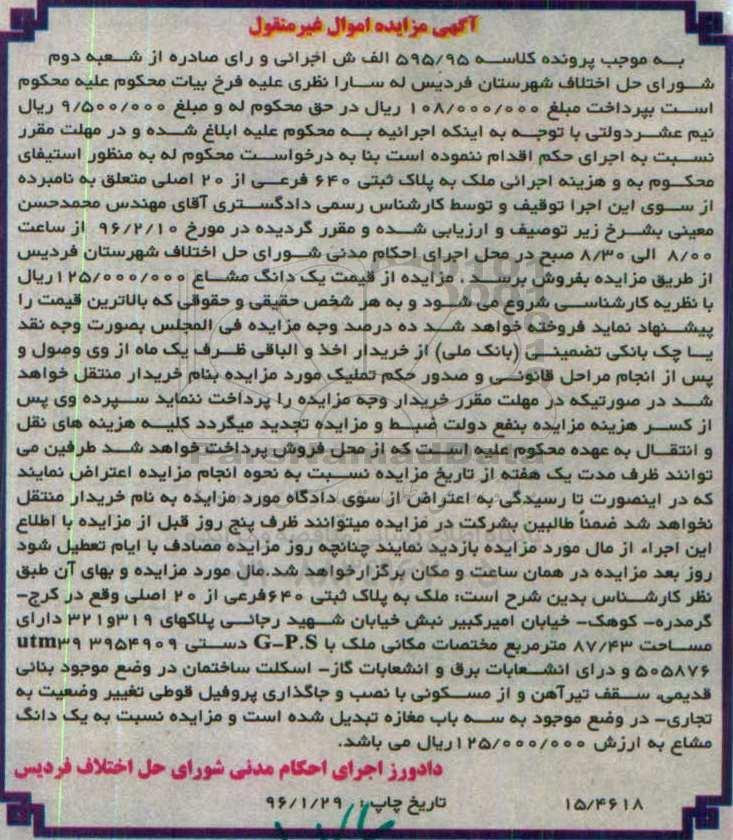 آگهی مزایده اموال غیرمنقول
به موجب پرونده کلاسه ۵۹۵/۹۵ الف ش اجرائی و رای صادره از شعبه دوم
شورای حل اختلاف شهرستان فردیس له سارا نظری علیه فرخ بیات محکوم علیه محکوم
است بپرداخت مبلغ ۱۰۸/۰۰۰/۰۰۰ ریال در حق محکوم له و مبلغ ۹/۵۰۰/۰۰۰ ریال
نیم عشردولتی با توجه به اینکه اجرائیه به محکوم علیه ابلاغ شده و در مهلت مقرر
نسبت به اجرای حکم اقدام ننموده است بنا به درخواست محکوم له به منظور استیفای
محکوم به و هزینه اجرائی ملک به پلاک ثبتی ۶۴۰ فرعی از ۲۰ اصلی متعلق به نامبرده
از سوی این اجرا توقیف و توسط کارشناس رسمی دادگستری آقای مهندس محمدحسن
معینی بشرح زیر توصیف و ارزیابی شده و مقرر گردیده در مورخ ۹۶/۲/۱۰ از ساعت
۸/۰۰ الی ۸/۳۰ صبح در محل اجرای احکام مدنی شورای حل اختلاف شهرستان فردیس
از طریق مزایده بفروش برسد. مزایده از قیمت یک دانگ مشاع ۱۲۵/۰۰۰/۰۰۰ریال
با نظریه کارشناسی شروع می شود و به هر شخص حقیقی و حقوقی که بالاترین قیمت را
پیشنهاد نماید فروخته خواهد شد ده درصد وجه مزایده فی المجلس بصورت وجه نقد
یا چک بانکی تضمینی (بانک ملی) از خریدار اخذ و الباقی ظرف یک ماه از وی وصول و
پس از انجام مراحل قانونی و صدور حکم تملیک مورد مزایده بنام خریدار منتقل خواهد
شد در صورتیکه در مهلت مقرر خریدار وجه مزایده را پرداخت ننماید سپرده وی پس
از کسر هزینه مزایده بنفع دولت ضبط و مزایده تجدید میگردد کلیه هزینه های نقل
و انتقال به عهده محکوم علیه است که از محل فروش پرداخت خواهد شد طرفین می
توانند ظرف مدت یک هفته از تاریخ مزایده نسبت به نحوه انجام مزایده اعتراض نمایند
که در اینصورت تا رسیدگی به اعتراض از سوی دادگاه مورد مزایده به نام خریدار منتقل
نخواهد شد ضمناً طالبین بشرکت در مزایده میتوانند ظرف پنج روز قبل از مزایده با اطلاع
این اجراء از مال مورد مزایده بازدید نمایند چنانچه روز مزایده مصادف با ایام تعطیل شود
روز بعد مزایده در همان ساعت و مکان برگزارخواهد شد.مال مورد مزایده و بهای آن طبق
نظر کارشناس بدین شرح است: ملک به پلاک ثبتی ۶۴۰فرعی از ۲۰ اصلی وقع در کرج-
گرمدره- کوهک- خیابان امیرکبیر نبش خیابان شهید رجائی پلاکهای ۳۱۹و۳۲۱ دارای
مساحت ۸۷/۴۳ مترمربع مختصات مکانی ملک با G-P.S دستی ۳۹۵۴۹۰۹ utm۳۹
۵۰۵۸۷۶ و درای انشعابات برق و انشعابات گاز- اسکلت ساختمان در وضع موجود بنائی
قدیمی، سقف تیرآهن و از مسکونی با نصب و جاگذاری پروفیل قوطی تغییر وضعیت به
تجاری- در وضع موجود به سه باب مغازه تبدیل شده است و مزایده نسبت به یک دانگ
مشاع به ارزش ۱۲۵/۰۰۰/۰۰۰ریال می باشد.
دادورز اجرای احکام مدنی شورای حل اختلاف فردیس
۱۵/۴۶۱۸ تاریخ چاپ: ۹۶/۱/۲۹